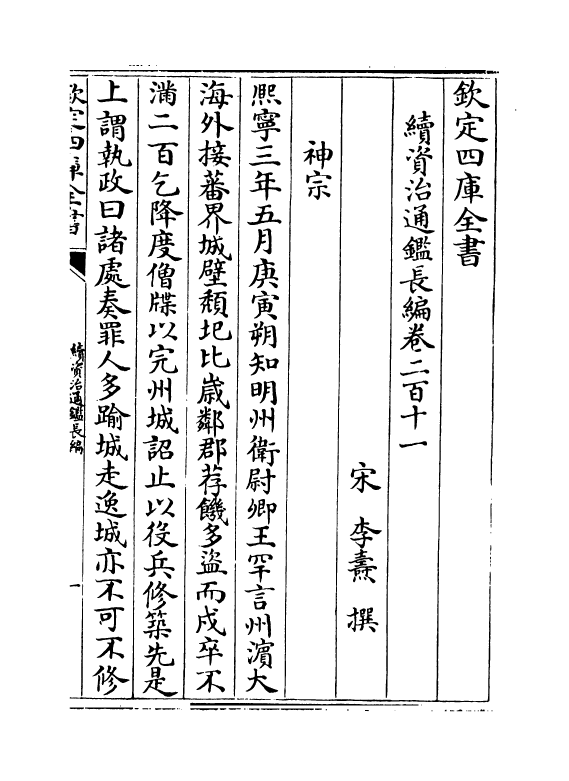 欽定四庫全書
續資治通鑑長編卷二百十一
宋 李燾 撰
神宗
熈寧三年五月庚寅朔知明州衛尉卿王罕言州濵大
海外接蕃界城壁頽圮比嵗鄰郡荐饑多盜而戍卒不
滿二百乞降度僧牒以完州城詔止以役兵修築先是
上謂執政曰諸處奏罪人多踰城走逸城亦不可不修
欽定四庫全書
續資治通鑑長編
一